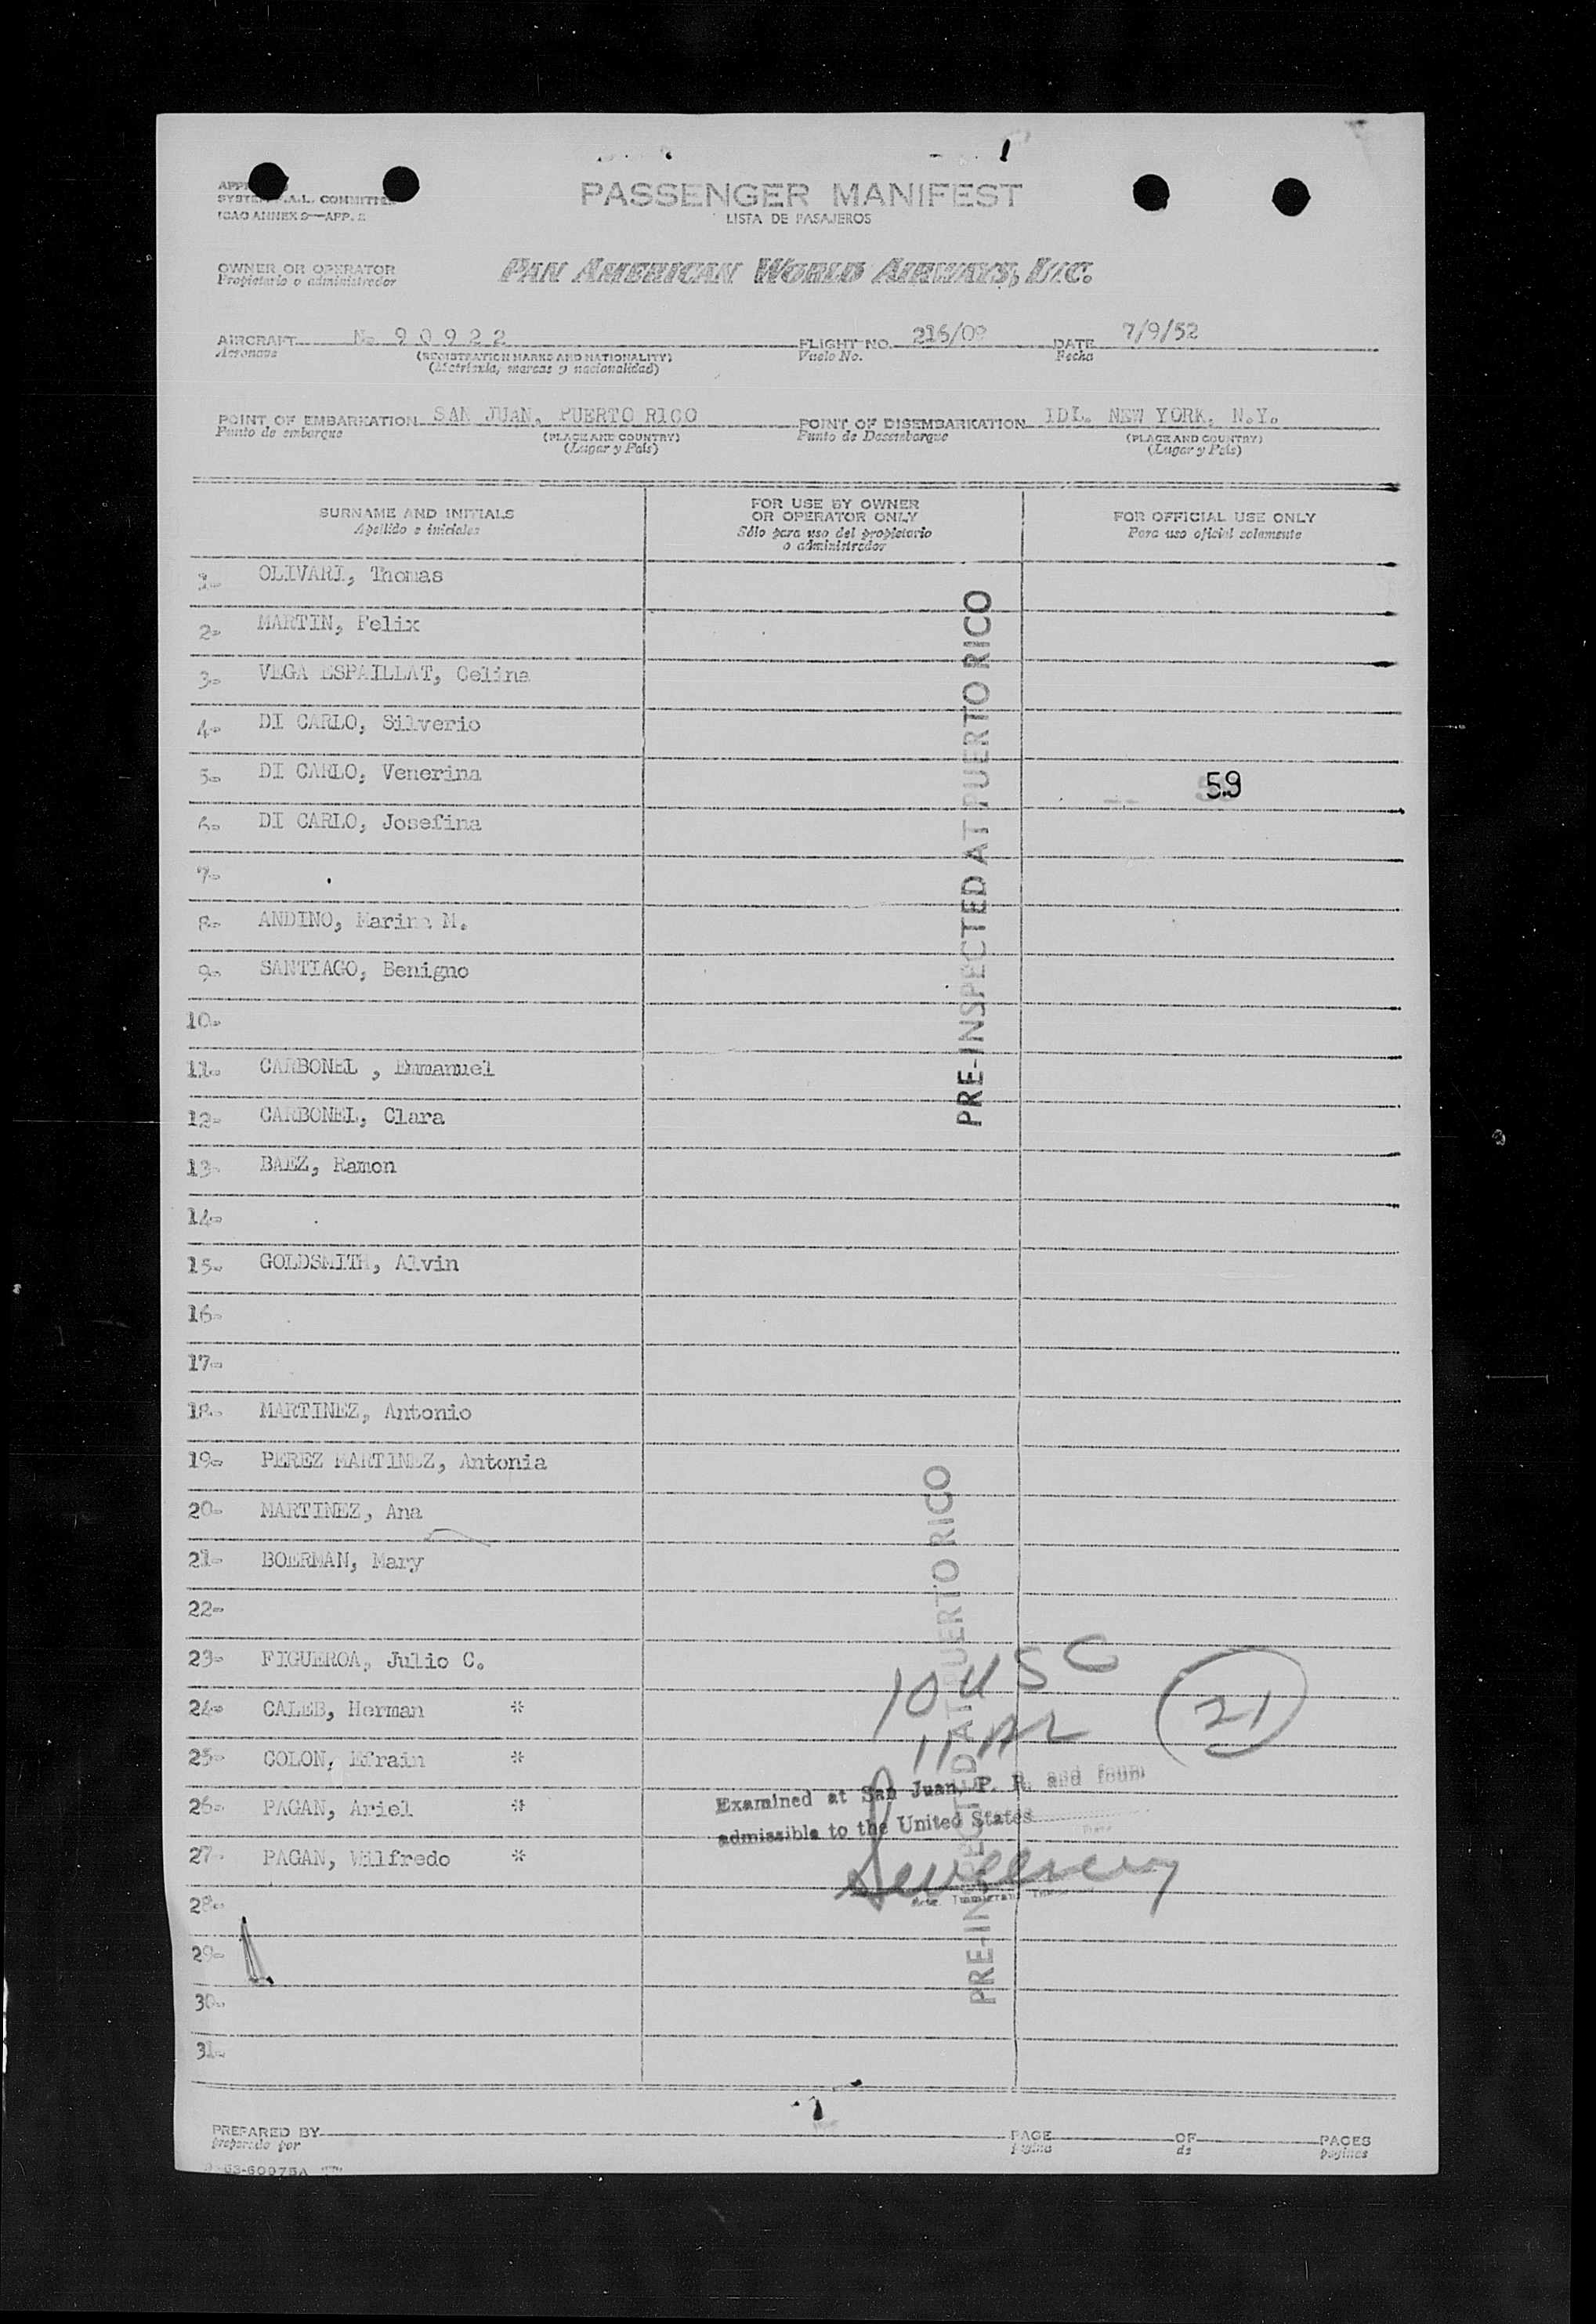 PASSENGER MANIFEST
LISTA DE PASAJEROS
SYSTEM .A.L. COMMITTEE
ICAO ANNEX 9—APP. 2
OWNER OR OPERATOR
Propietario o administrador
PAN AMERICAN WORLD AIRWAYS, INC.
AIRCRAFT No 90922 FLIGHT NO. 216/09 DATE 7/9/52
Aeronave (REGISTRATION MARKS AND NATIONALITY) Vuelo No. Fecha
(Matrícula, marcas y nacionalidad)
POINT OF EMBARKATION SAN JUAN, PUERTO RICO POINT OF DISEMBARKATION IDL. NEW YORK, N.Y.
Punto de embarque (PLACE AND COUNTRY) Punto de Desembarque (PLACE AND COUNTRY)
(Lugar y País) (Lugar y País)
SURNAME AND INITIALS FOR USE BY OWNER OR OPERATOR ONLY FOR OFFICIAL USE ONLY
Apellido e iniciales Sólo para uso del propietario o administrador Para uso oficial solamente
1- OLIVARI, Thomas
2- MARTIN, Felix
3- VEGA ESPAILLAT, Celina
4- DI CARLO, Silverio
5- DI CARLO, Venerina 59
6- DI CARLO, Josefina
7-
8- ANDINO, Marina M.
9- SANTIAGO, Benigno
10-
11- CARBONEL , Emmanuel
12- CARBONEL, Clara
13- BAEZ, Ramon
14-
15- GOLDSMITH, Alvin
16-
17-
18- MARTINEZ, Antonio
19- PEREZ MARTINEZ, Antonia
20- MARTINEZ, Ana
21- BOERMAN, Mary
22-
23- FIGUEROA, Julio C.
24- CALEB, Herman *
25- COLON, Efrain *
26- PAGAN, Ariel *
27- PAGAN, Wilfredo *
28-
29-
30-
31-
PRE-INSPECTED AT PUERTO RICO
PRE-INSPECTED AT PUERTO RICO
10 USC
11
21
Examined at San Juan, P. R. and found
admissible to the United States
Sweeney
PREPARED BY PAGE OF PAGES
preparado por página de páginas